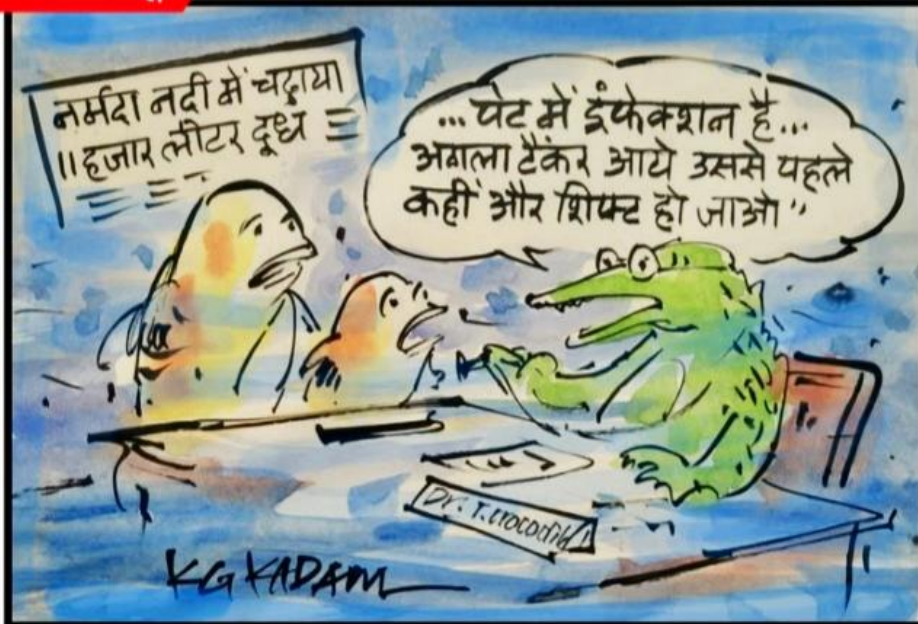 नर्मदा नदी में चढ़ाया
11 हजार लीटर दूध
...पेट में इंफेक्शन है...
अगला टैंकर आये उससे पहले
कहीं और शिफ्ट हो जाओ"
Dr. T. Crocodile
KG KADAM